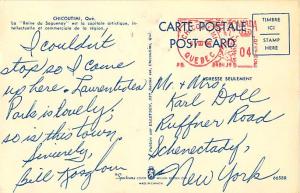 CHICOUTIMI, Que.
La "Reine du Saguenay" est la capitale artistique, in-
tellectuelle et commerciale de la région.
I couldnt
stop so I came
up here. Laurentides
Park is lovely,
so is this town.
Sincerely,
Bill
CARTE POSTALE
POST CARD
QUEBEC
04
TIMBRE
ICI
STAMP
HERE
ADRESSE SEULEMENT
Mr. & Mrs.
Karl Doll
Ruffner Road
Schenectady,
New York
66588